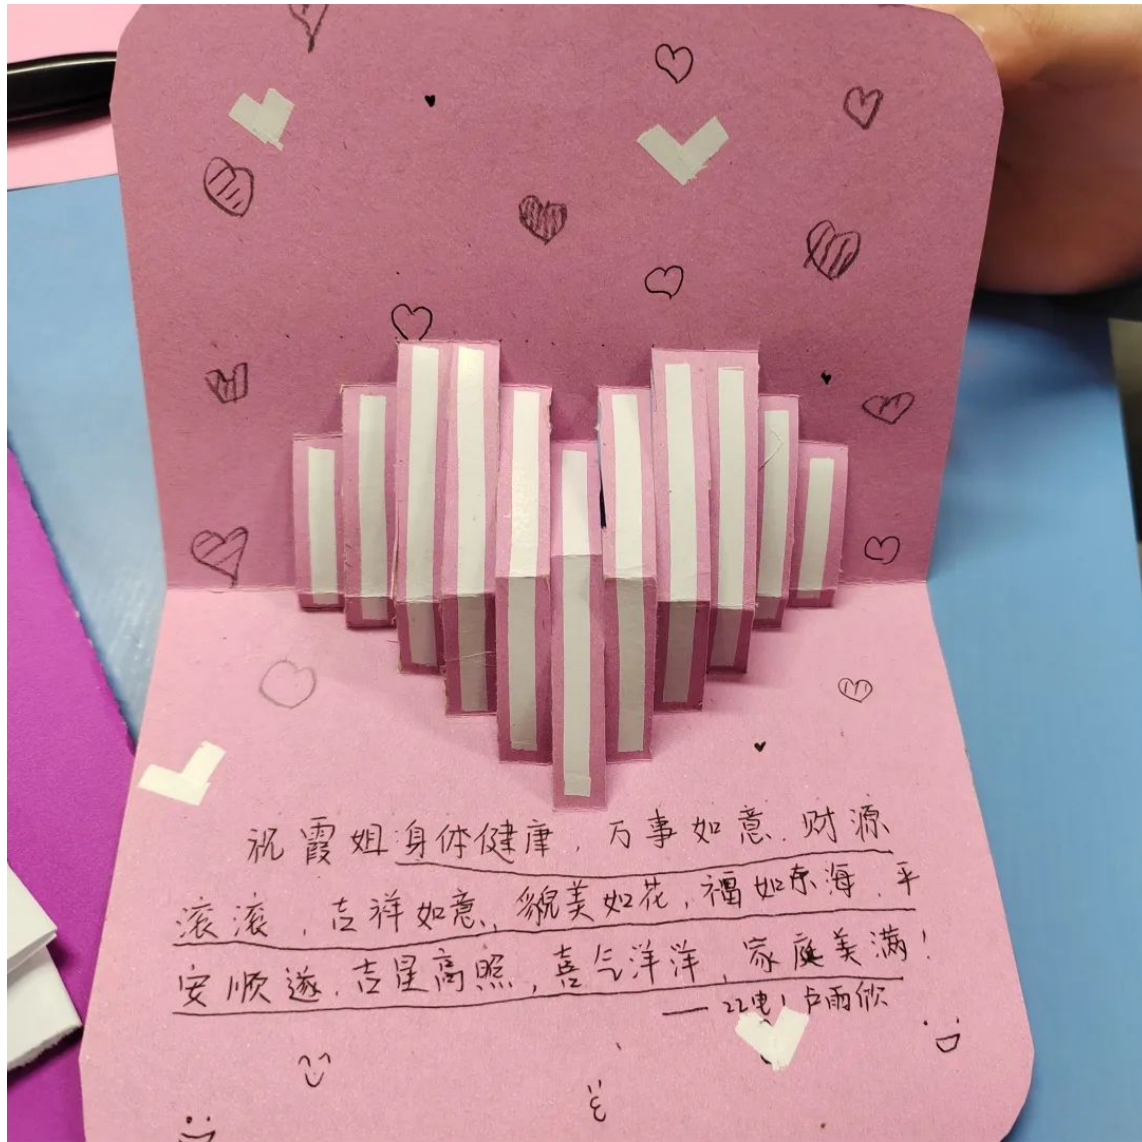 祝霞姐身体健康，万事如意．财源
滚滚，吉祥如意，貌美如花，福如东海．平
安顺遂．吉星高照，喜气洋洋，家庭美满！
——22电1 卢雨欣